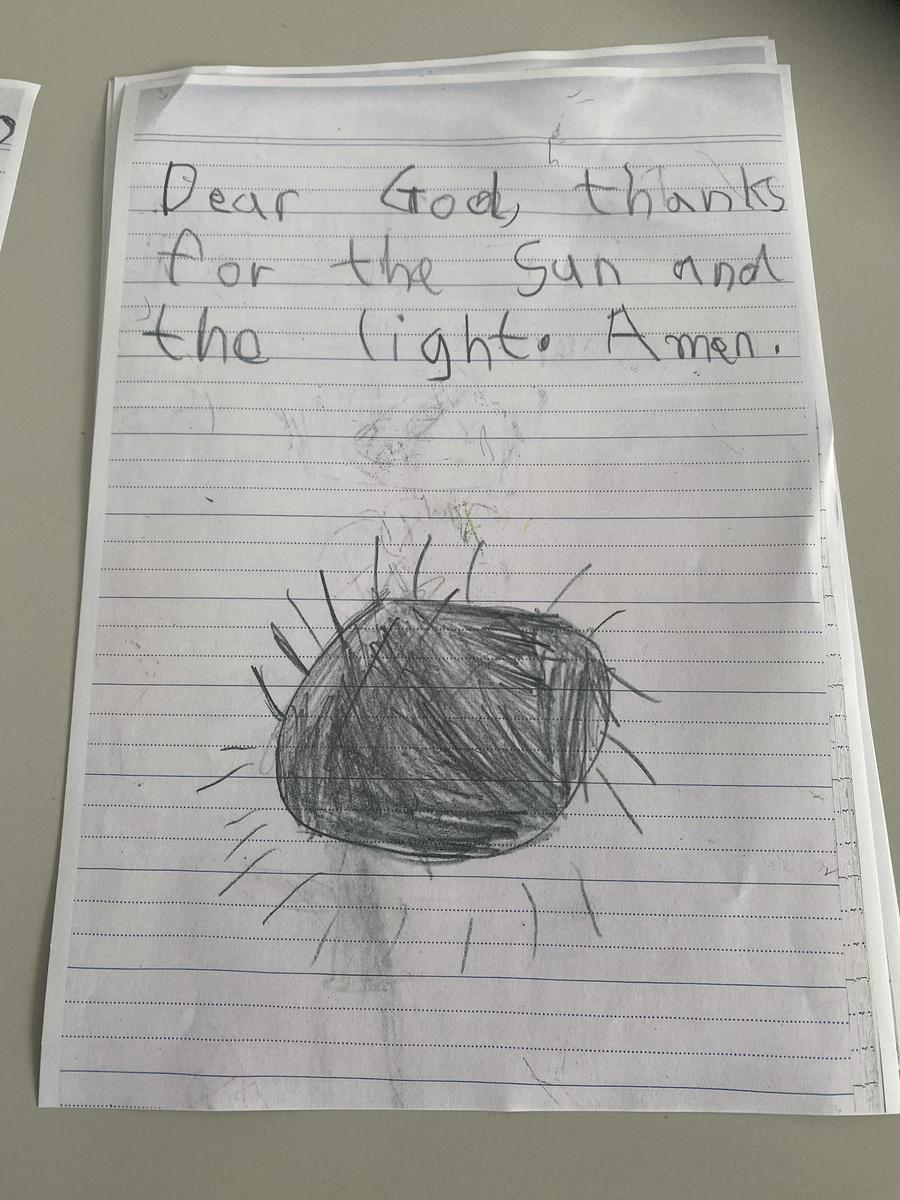 Dear God, thanks
for the Sun and
the light. Amen.